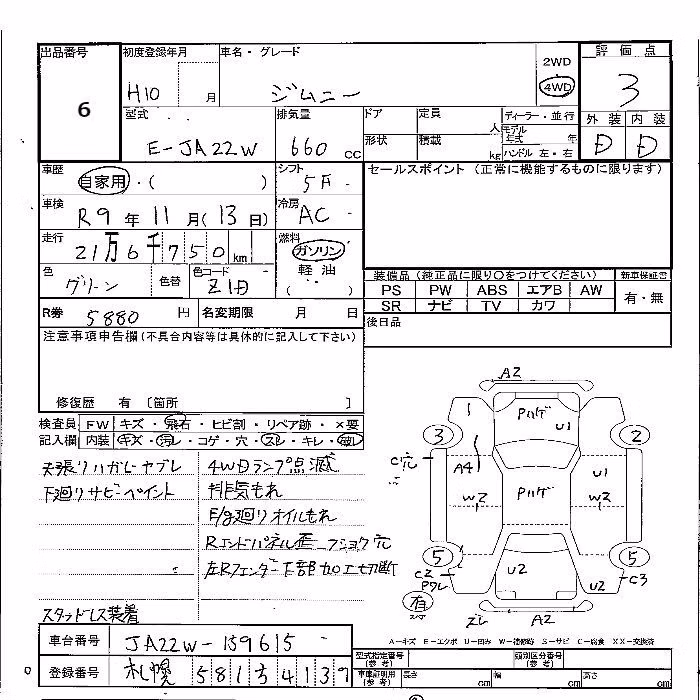 出品番号 初度登録年月 車名・グレード 評価点
6 H10 月 ジムニー 2WD 4WD 3
型式 排気量 ドア 定員 人 ディーラー・並行 外装 内装
E-JA22W 660 CC 形状 積載 kg モデル年式 年 ハンドル 左・右 D D
車歴 自家用・( ) シフト 5F セールスポイント(正常に機能するものに限ります)
車検 R9年 11月(13日) 冷房 AC
走行 21万6千750km 燃料 ガソリン
色 グリーン 色替 色コード Z1J 軽油 ( )
装備品(純正品に限り○をつけてください) 新車保証書
PS PW ABS エアB AW 有・無
SR ナビ TV カワ
R券 5880円 名変期限 月 日 後日品
注意事項申告欄(不具合内容等は具体的に記入して下さい)
修復歴 有 〔箇所 〕
検査員 FW キズ・飛石・ヒビ割・リペア跡・×要
記入欄 内装 キズ・汚レ・コゲ・穴・スレ・キレ・破レ
天張りハガレヤブレ 4WDランプ点滅
下廻りサビペイント 排気もれ
E/g廻りオイルもれ
Rエンドパネル歪 フショク穴
左Rフェンダー下部加工切断
スタッドレス装着
A2
1 Pハゲ U1
3 2
C穴 A4 U1
W2 Pハゲ W2
5 5
C2 Pワレ U2 U2 C3
有 スレ A2
A-キズ E-エクボ U-凹み W-補修跡 S-サビ C-腐食 XX-交換済
車台番号 JA22W-139615
型式指定番号(参考) 類別区分番号(参考)
登録番号 札幌 581 ち 4139
車庫証明用(参考) 長さ cm 幅 cm 高さ cm